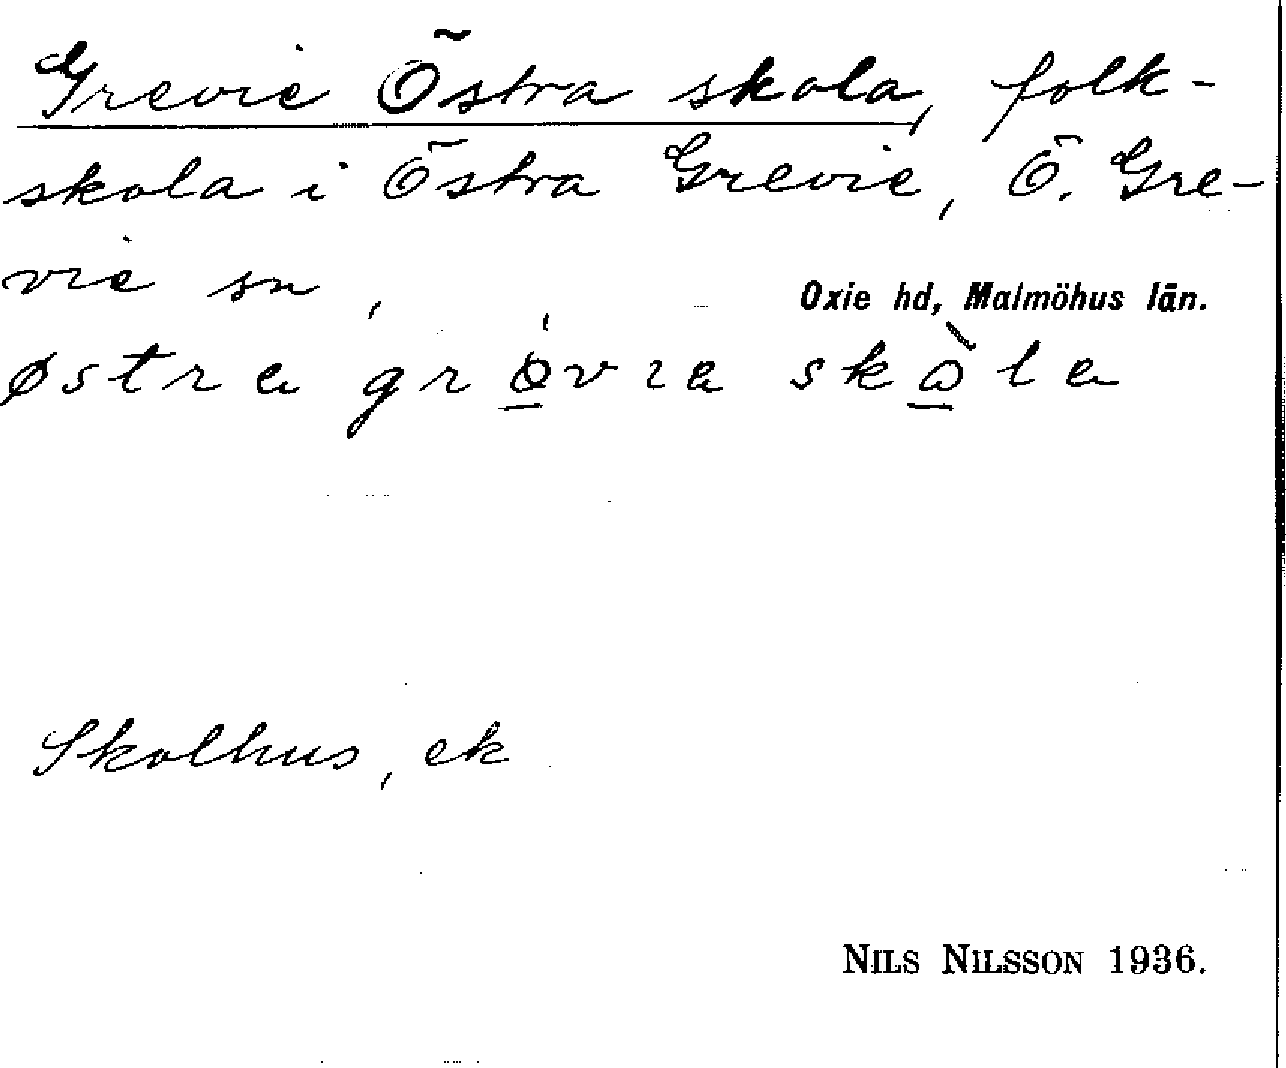 Grevie Östra skola, folk-
skola i Östra Grevie, Ö. Gre-
vie sn, Oxie hd, Malmöhus län.
østra grǿ̲vıa skò̲la
Skolhus, ek
NILS NILSSON 1936.